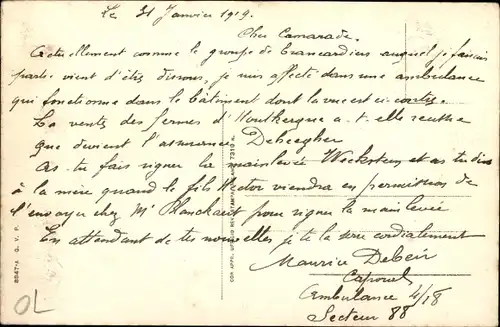 Le 31 Janvier 1919.
Cher Camarade.
Actuellement comme le groupe de brancardiers auquel je faisais
partie vient d'être dissous, je suis affecté dans une ambulance
qui fonctionne dans le bâtiment dont la vue est ci-contre.
La vente des fermes d'Houtkerque a-t-elle réussi
Que devient l'assurance Dehaegher
As-tu fais signer la mainlevée Weeksteen et as-tu dis
à la mère quand le fils Hector viendra en permission de
l'envoyer chez Mr Planckaert pour signer la mainlevée
En attendant de tes nouvelles je te la serre cordialement
Maurice Debeir
Caporal
Ambulance 4/18
Secteur 88
8047-A G. V. P.
OL